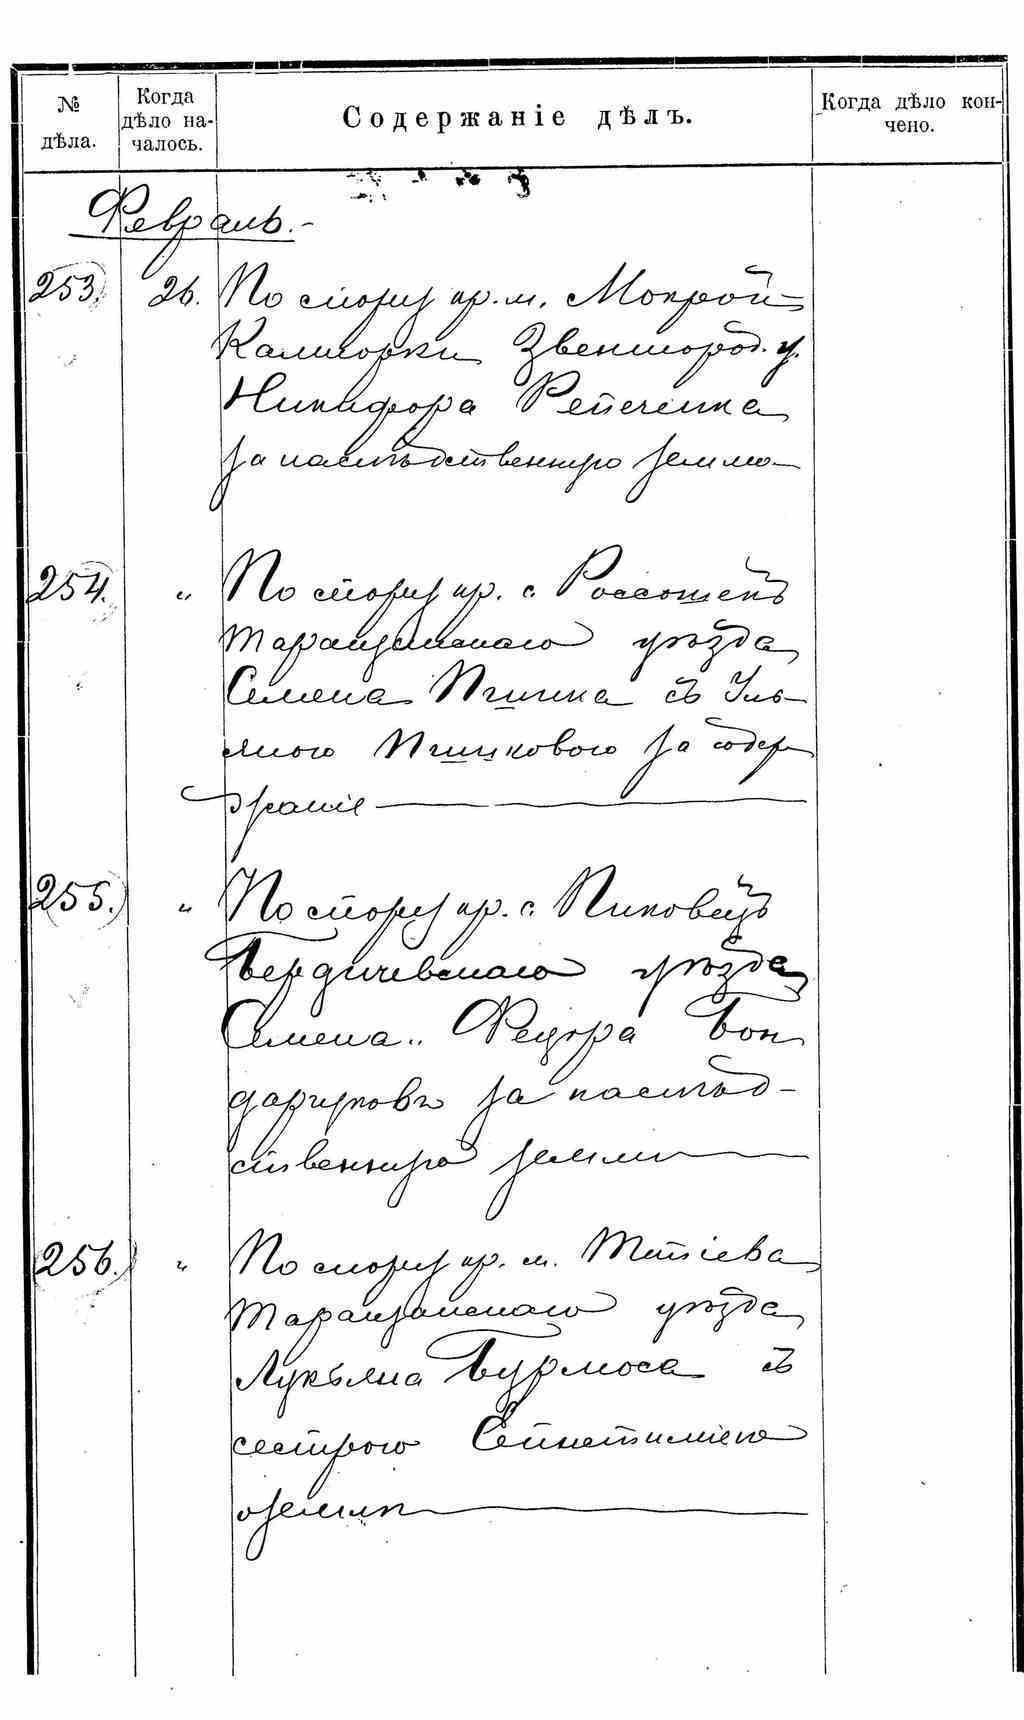 № дѣла.
Когда дѣло на-
чалось.
Содержаніе дѣлъ.
Когда дѣло кон-
чено.
Февраль.-
253. 26. По спору кр. м. Мокрой
Калигорки Звенигород. у.
Никифора Репеченка
за наслѣдственную землю
254. " По спору кр. с. Россошекъ
Таращанскаго уѣзда
Семена с Уль-
яною за содер
жаніе
255. " По спору кр. с. Пиковецъ
Бердичевскаго уѣзда
Семена и Федора Бон
дарчуковъ за наслѣд-
ственную землю
256. " По спору кр. м. Тетіева
Таращанскаго уѣзда
Лукьяна Бурмоса съ
сестрою
о землѣ